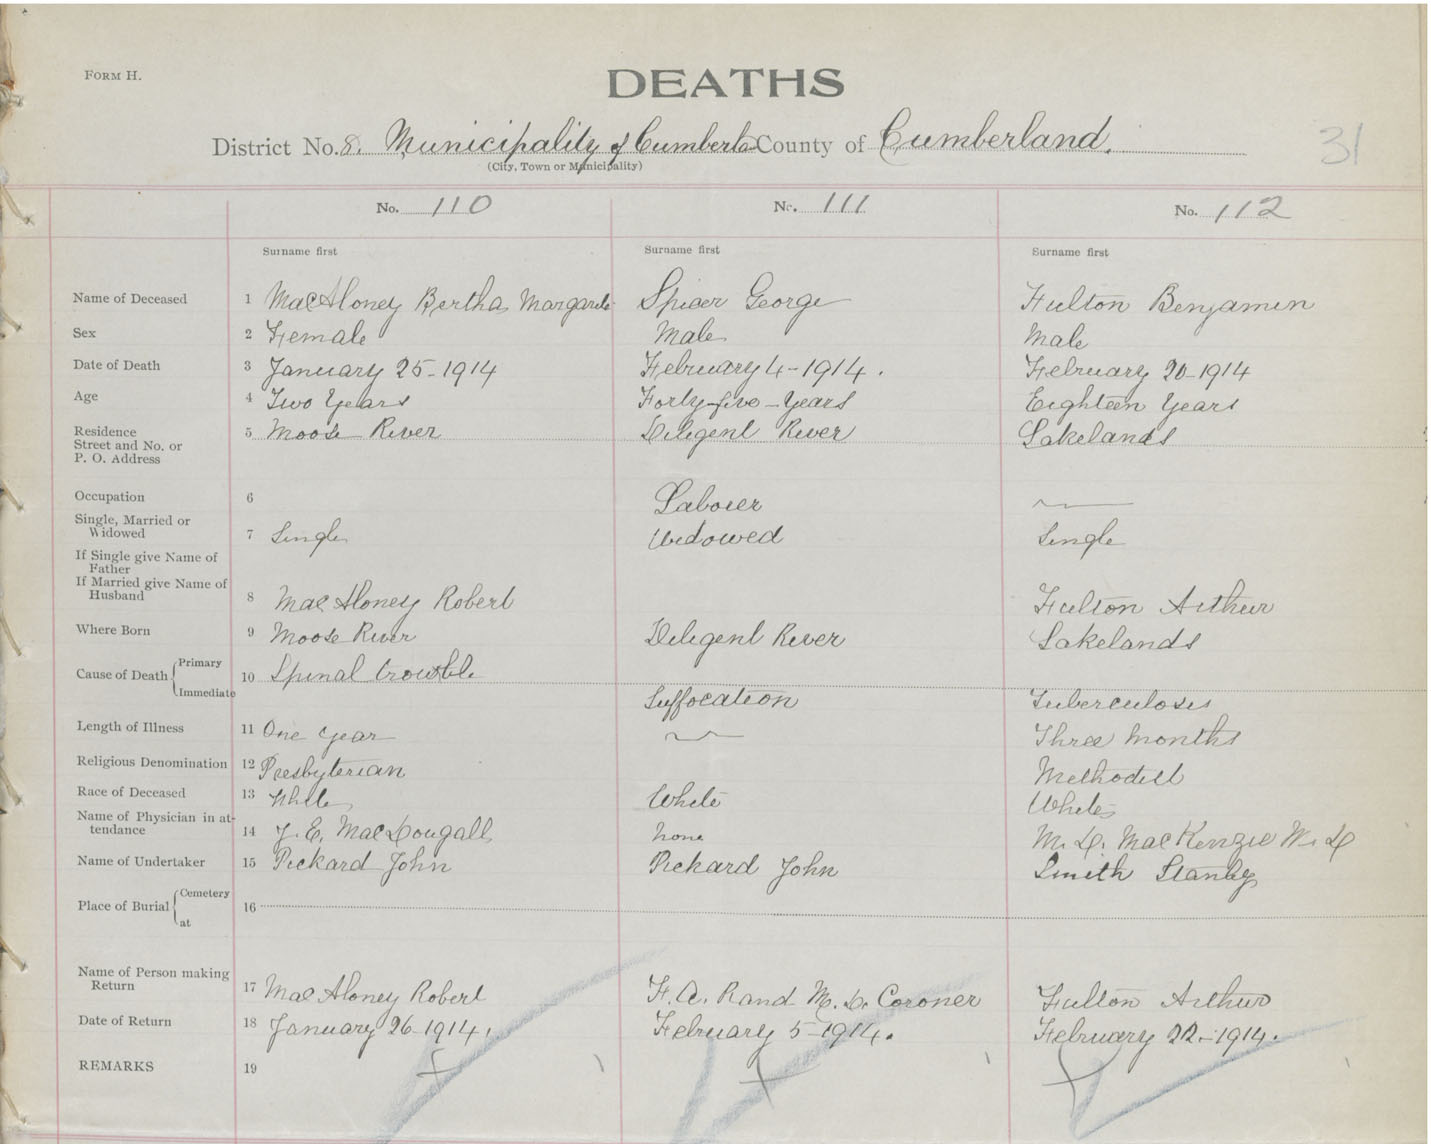 FORM H.
DEATHS
31
District No. 8. Municipality of Cumberla County of Cumberland.
(City, Town or Municipality)
No. 110 No. 111 No. 112
Surname first Surname first Surname first
Name of Deceased 1 MacAloney Bertha Margarete Spicer George Fulton Benjamin
Sex 2 Female Male Male
Date of Death 3 January 25-1914 February 4-1914. February 20-1914
Age 4 Two Years Forty-five-Years Eighteen Years
Residence 5 Moose River Diligent River Lakelands
Street and No. or
P. O. Address
Occupation 6 Laborer
Single, Married or
Widowed 7 Single Widowed Single
If Single give Name of
Father
If Married give Name of
Husband 8 MacAloney Robert Fulton Arthur
Where Born 9 Moose River Diligent River Lakelands
Cause of Death Primary 10 Spinal trouble
Immediate Suffocation Tuberculosis
Length of Illness 11 One year Three Months
Religious Denomination 12 Presbyterian Methodist
Race of Deceased 13 White White White
Name of Physician in at-
tendance 14 J. E. MacDougall none M. D. MacKenzie M. D
Name of Undertaker 15 Pickard John Pickard John Smith Stanley
Place of Burial Cemetery 16
at
Name of Person making
Return 17 MacAloney Robert F. A. Rand M. D. Coroner Fulton Arthur
Date of Return 18 January 26-1914. February 5-1914. February 22-1914.
REMARKS 19